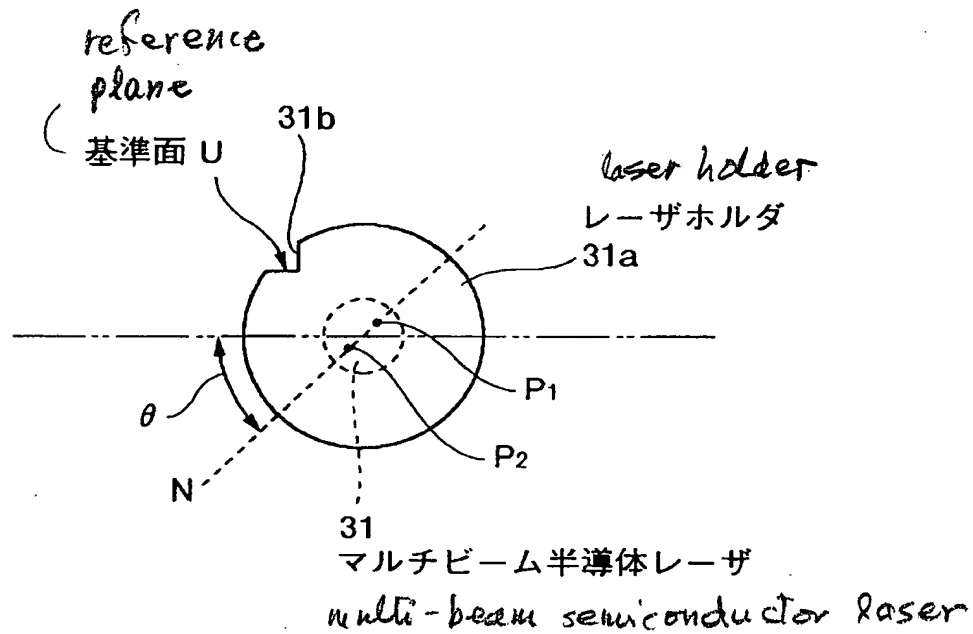 reference
plane
基準面 U
31b
laser holder
レーザホルダ
31a
θ
P1
P2
N
31
マルチビーム半導体レーザ
multi-beam semiconductor laser